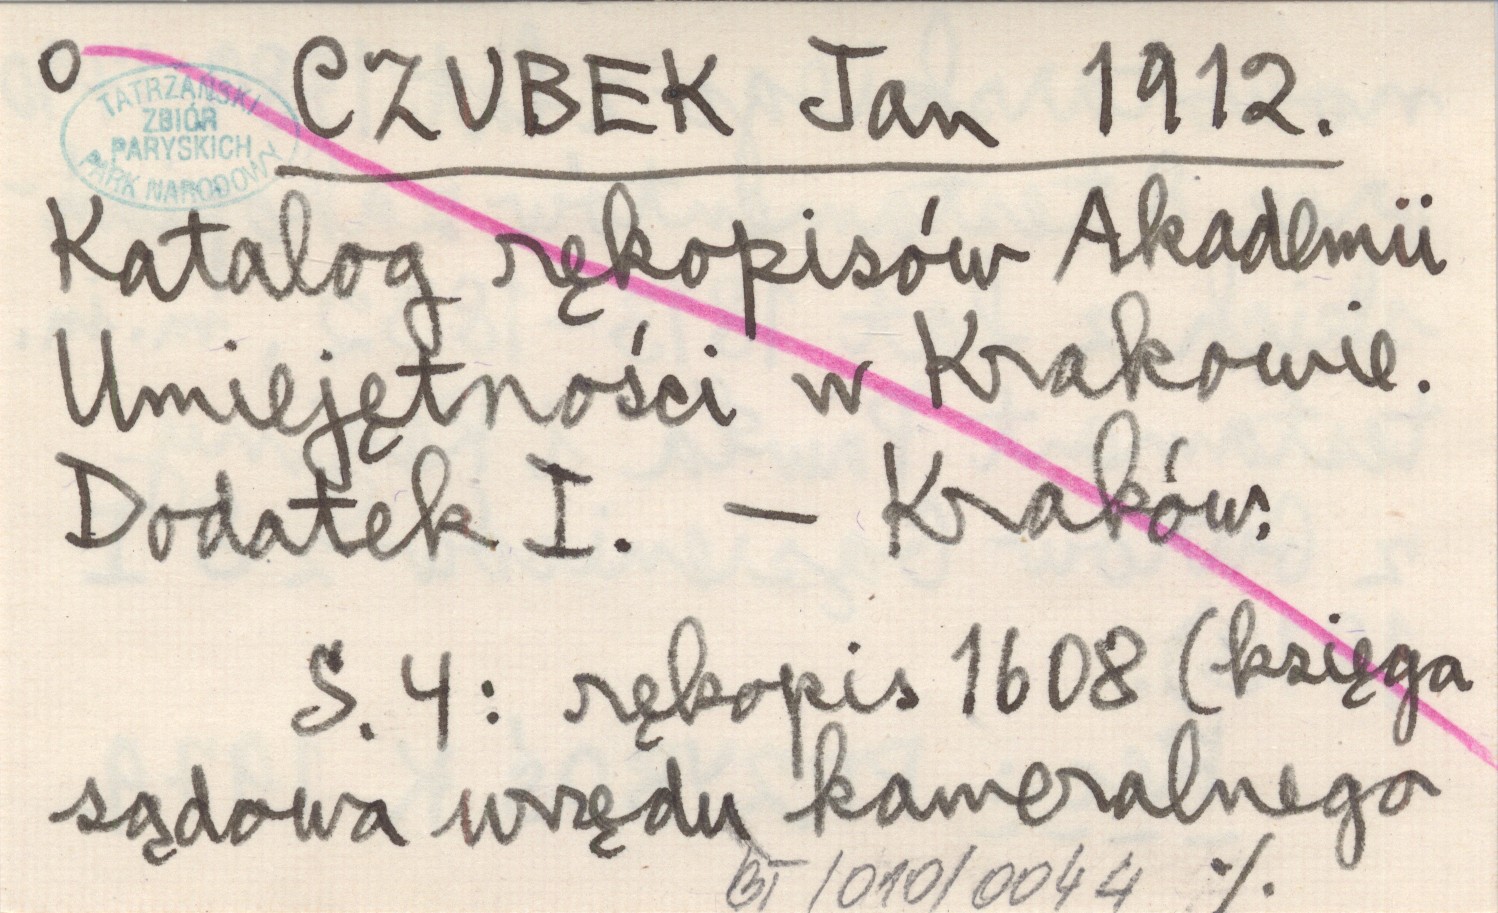 o CZUBEK Jan 1912.
TATRZAŃSKI
ZBIÓR
PARYSKICH
PARK NARODOWY
Katalog rękopisów Akademii
Umiejętności w Krakowie.
Dodatek I. — Kraków.
S. 4: rękopis 1608 (księga
sądowa urzędu kameralnego
BT/010/0044 ·/.